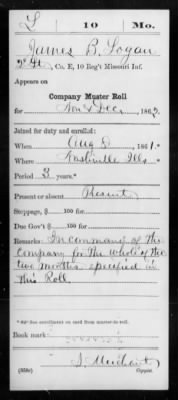 L 10 Mo.
James B. Logan
2" Lt, Co. E, 10 Reg't Missouri Inf.
Appears on
Company Muster Roll
for Nov & Dec, 1862.
Joined for duty and enrolled:
When Aug 8, 1861.
Where Nashville Ills
Period 3 years.*
Present or absent Present
Stoppage, $ 100 for
Due Gov't $ 100 for
Remarks: In command of the
company for the whole of the
two months specified in
this Roll.
*See enrollment on card from muster-in roll.
Book mark:
(358c) Copyist.